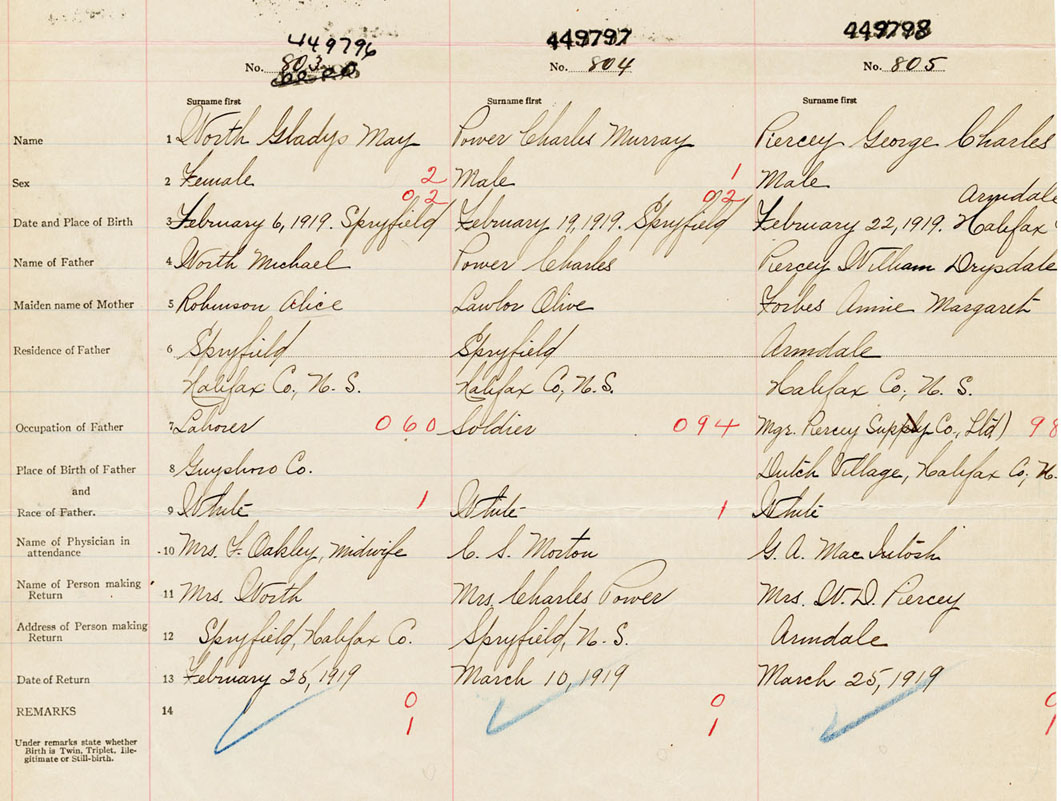 449796 449797 449798
No. 803 No. 804 No. 805
Surname first Surname first Surname first
Name 1 Worth Gladys May Power Charles Murray Piercey George Charles
Sex 2 Female 2 Male 1 Male
02 02 Armdale
Date and Place of Birth 3 February 6, 1919. Spryfield February 19, 1919. Spryfield February 22, 1919. Halifax
Name of Father 4 Worth Michael Power Charles Piercey William Drysdale
Maiden name of Mother 5 Robinson Alice Lawlor Olive Forbes Annie Margaret
Residence of Father 6 Spryfield Spryfield Armdale
Halifax Co., N. S. Halifax Co., N. S. Halifax Co., N. S.
Occupation of Father 7 Laborer 060 Soldier 094 Mgr. Piercey Supply Co., Ltd) 98
Place of Birth of Father 8 Guysboro Co. Dutch Village, Halifax Co., N.
and
Race of Father. 9 White 1 White 1 White
Name of Physician in
attendance 10 Mrs. F. Oakley, midwife C. S. Morton G. A. MacIntosh
Name of Person making
Return 11 Mrs. Worth Mrs. Charles Power Mrs. W. D. Piercey
Address of Person making
Return 12 Spryfield, Halifax Co. Spryfield, N. S. Armdale
Date of Return 13 February 25, 1919 March 10, 1919 March 25, 1919
REMARKS 14 0 0 0
1 1 1
Under remarks state whether
Birth is Twin, Triplet, Ille-
gitimate or Still-birth.